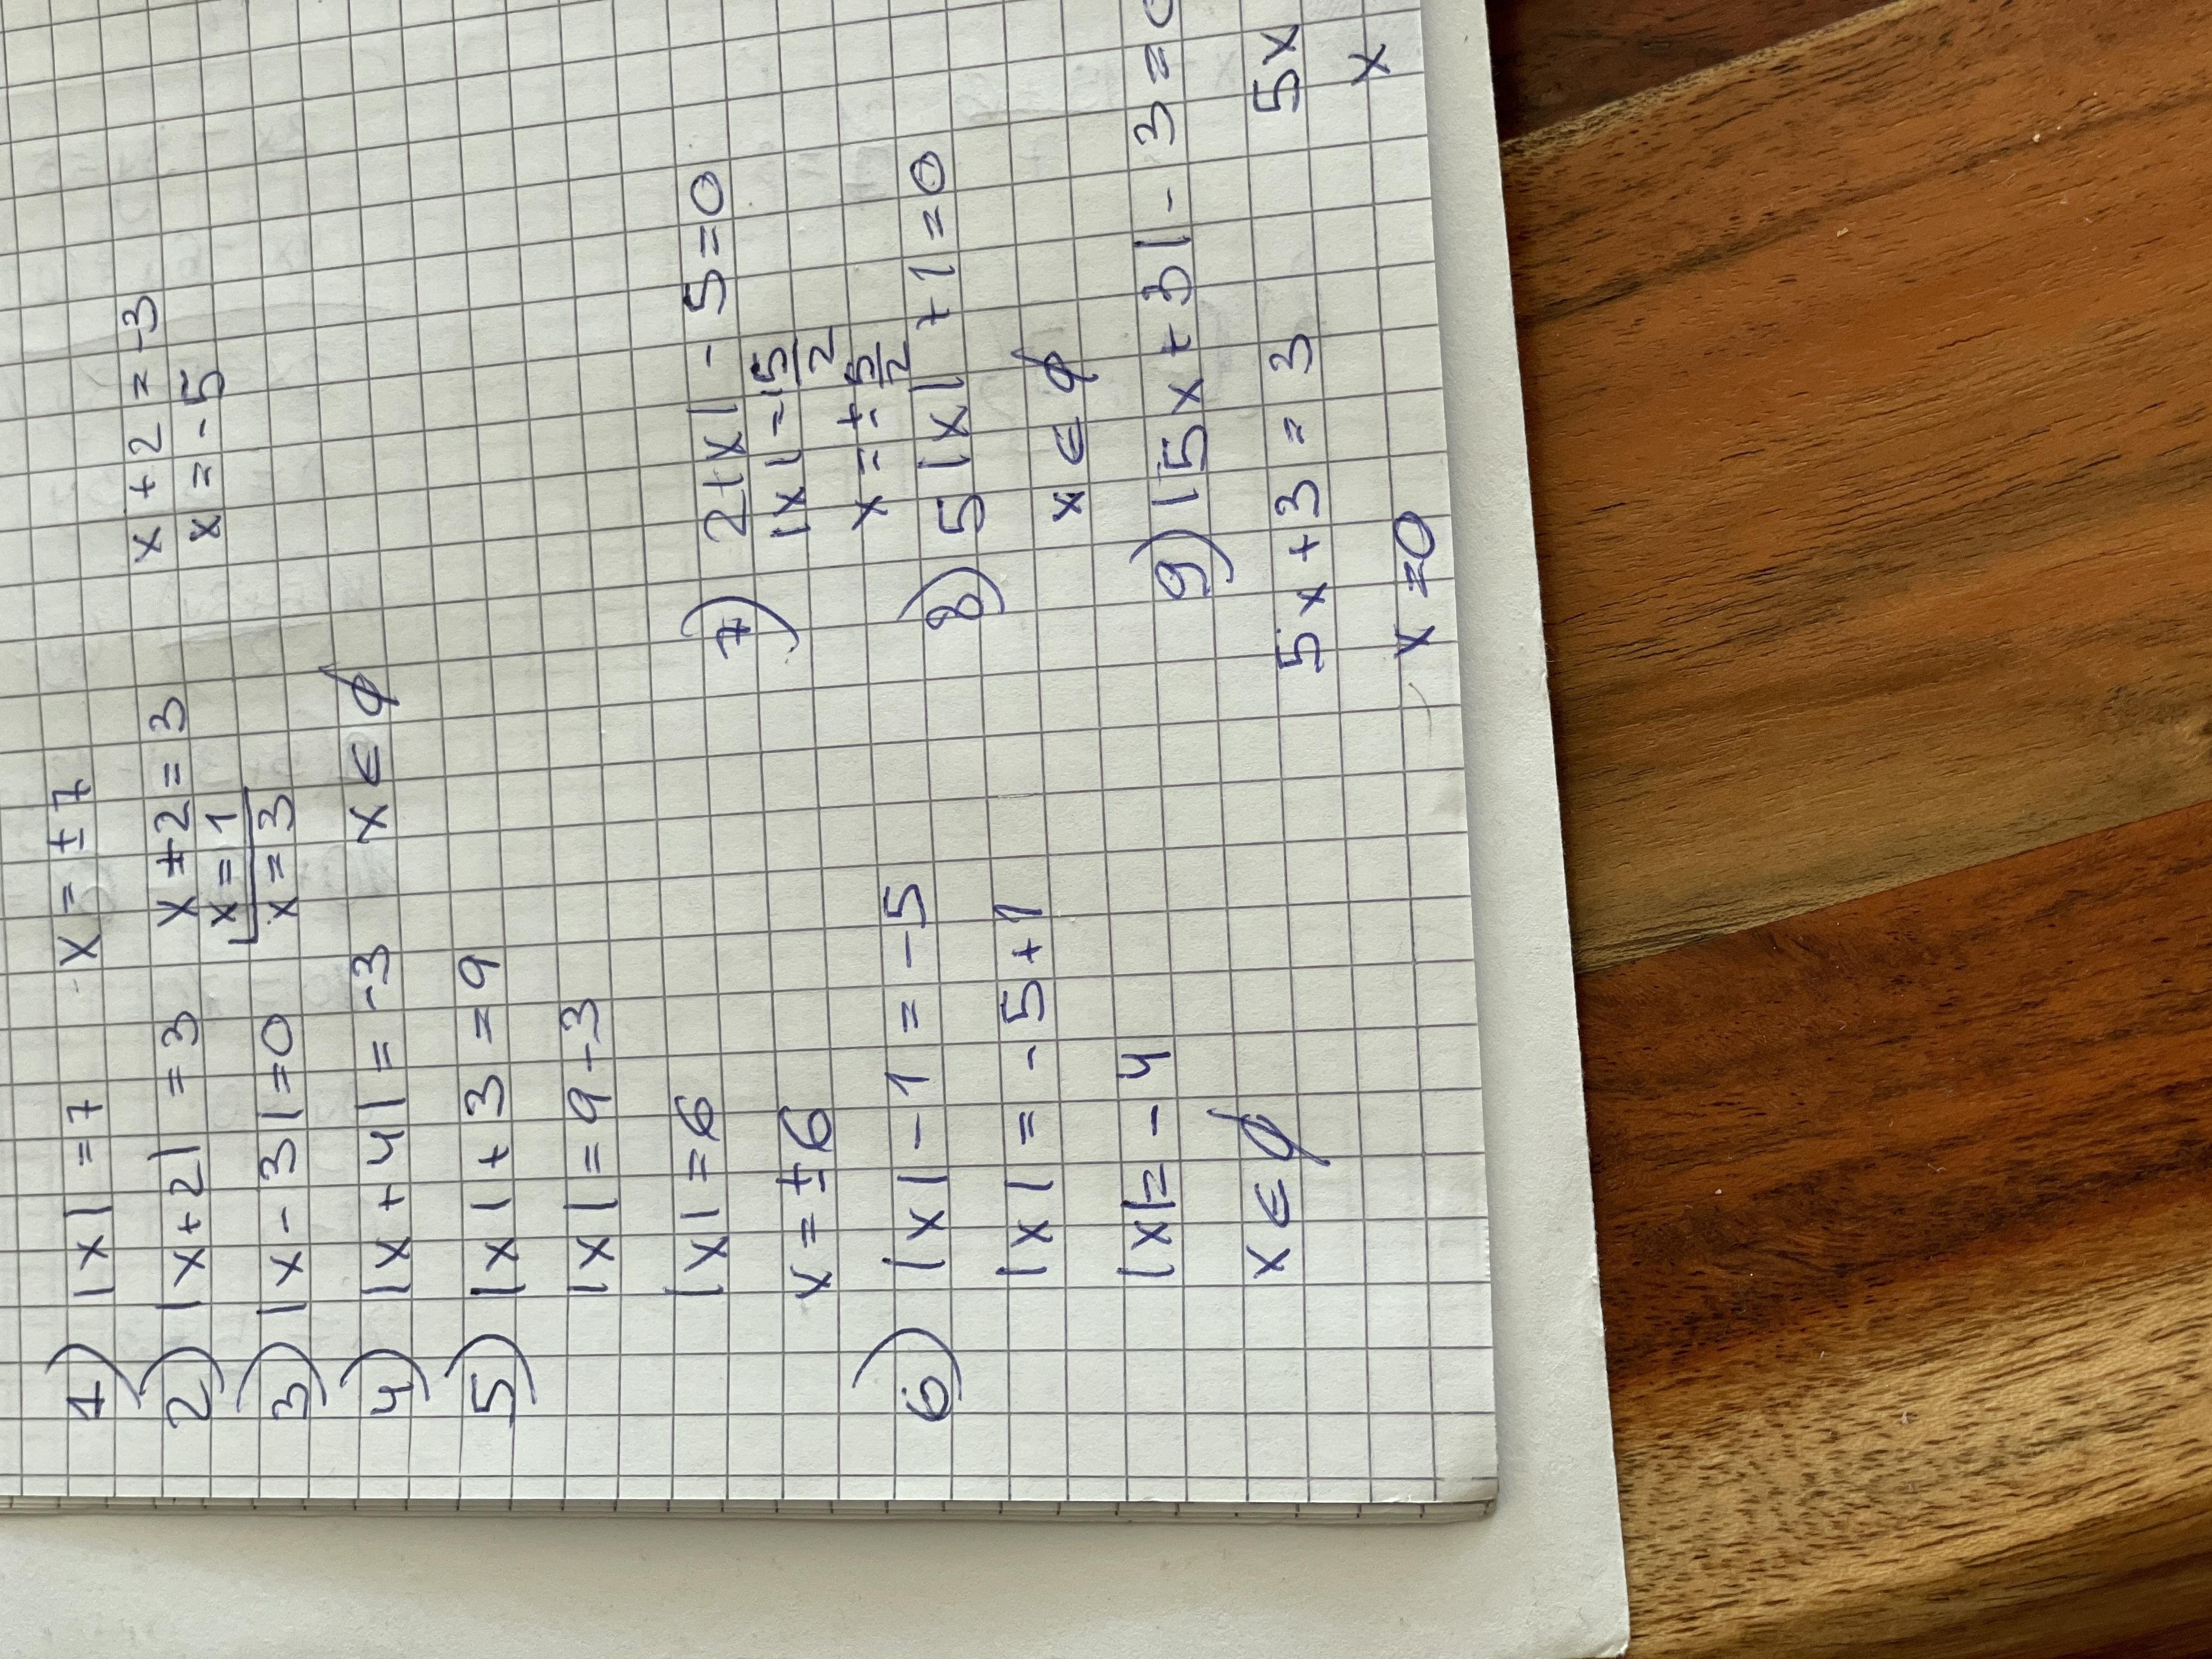 1) |x| = 7 x = ±7
2) |x+2| = 3 x+2=3 x+2=-3
x=1 x=-5
3) |x-3|=0 x=3
4) |x+4| = -3 x∈∅
5) |x|+3=9
|x|=9-3
|x|=6
x=±6
6) |x|-1=-5
|x|=-5+1
|x|=-4
x∈∅
7) 2|x|-5=0
x=±5/2
8) 5|x|+1=0
x∈∅
9) |5x+3|-3=0
5x+3=3 5x
x=0 x